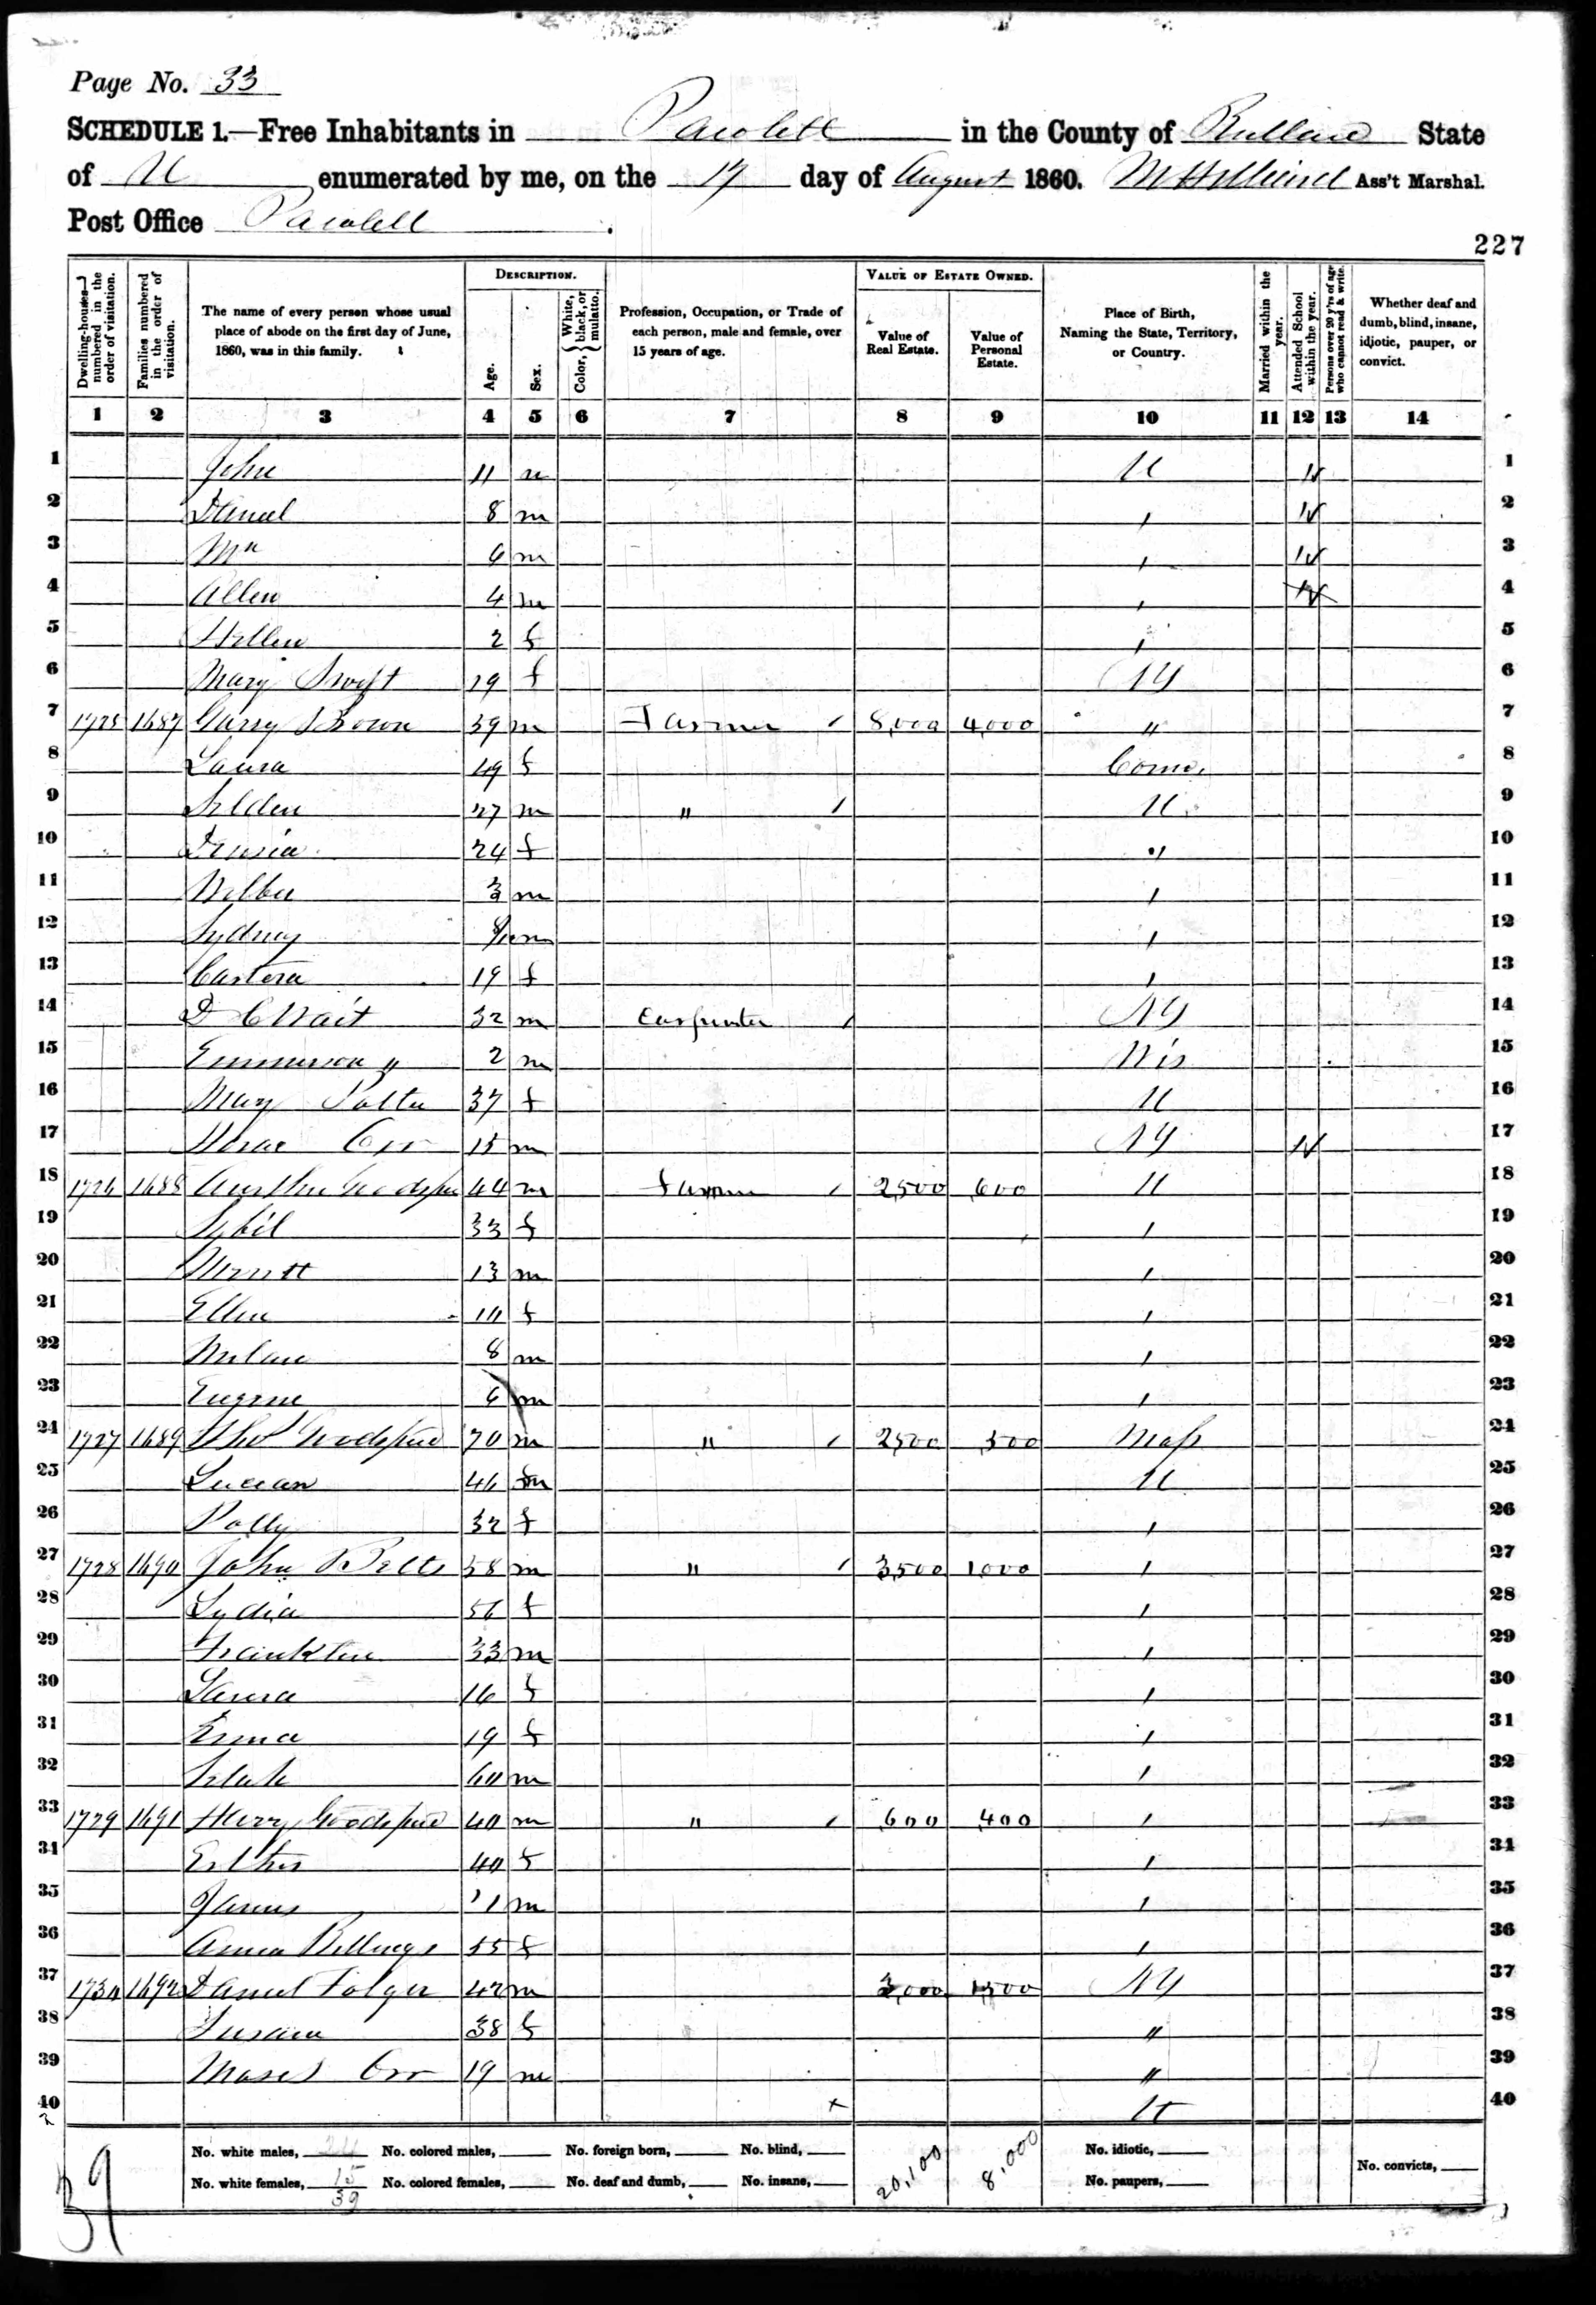 Page No. 33
SCHEDULE 1.—Free Inhabitants in Pawlett in the County of Rutland State
of Vt enumerated by me, on the 17 day of August 1860. Ass't Marshal.
Post Office Pawlett.
227
Dwelling-houses—numbered in the order of visitation.
Families numbered in the order of visitation.
The name of every person whose usual place of abode on the first day of June, 1860, was in this family.
DESCRIPTION.
Age.
Sex.
Color, { White, black, or mulatto.
Profession, Occupation, or Trade of each person, male and female, over 15 years of age.
VALUE OF ESTATE OWNED.
Value of Real Estate.
Value of Personal Estate.
Place of Birth, Naming the State, Territory, or Country.
Married within the year.
Attended School within the year.
Persons over 20 y'rs of age who cannot read & write.
Whether deaf and dumb, blind, insane, idiotic, pauper, or convict.
1 2 3 4 5 6 7 8 9 10 11 12 13 14
1 John 11 m Vt 1 1
2 Daniel 8 m " 1 2
3 Wm 6 m " 1 3
4 Allen 4 m " 4
5 Hellen 2 f " 5
6 Mary Swift 19 f NY 6
7 1725 1687 Brown 39 m Farmer / 8,000 4,000 " 7
8 Laura 49 f Conn. 8
9 Selden 27 m " / Vt 9
10 24 f " 10
11 Wilber 3 m " 11
12 Sydney m " 12
13 19 f " 13
14 D C Wait 32 m Carpenter / NY 14
15 Emmerson " 2 m Wis 15
16 Mary 37 f Vt 16
17 Orr 15 m NY 1 17
18 1726 1688 44 m Farmer / 2,500 600 Vt 18
19 Sybil 33 f " 19
20 Merritt 13 m " 20
21 Ellen f " 21
22 8 m " 22
23 Eugene 6 m " 23
24 1727 1689 70 m " / 2500 500 Mass 24
25 Lucian 46 m Vt 25
26 Polly 32 f " 26
27 1728 1690 John Betts 58 m " / 3,500 1000 " 27
28 Lydia 56 f " 28
29 Franklin 33 m " 29
30 Laura 16 f " 30
31 19 f " 31
32 60 m " 32
33 1729 1691 40 m " / 600 400 " 33
34 Esther 40 f " 34
35 James 11 m " 35
36 Anna Billings 55 f " 36
37 1730 1692 Daniel Folger 42 m 3,000 1500 NY 37
38 Susan 38 f " 38
39 Moses Orr 19 m " 39
40 x 40
No. white males, 24 No. colored males, No. foreign born, No. blind, 20,100 8,000 No. idiotic,
No. white females, 15 No. colored females, No. deaf and dumb, No. insane, No. paupers, No. convicts,
39
39